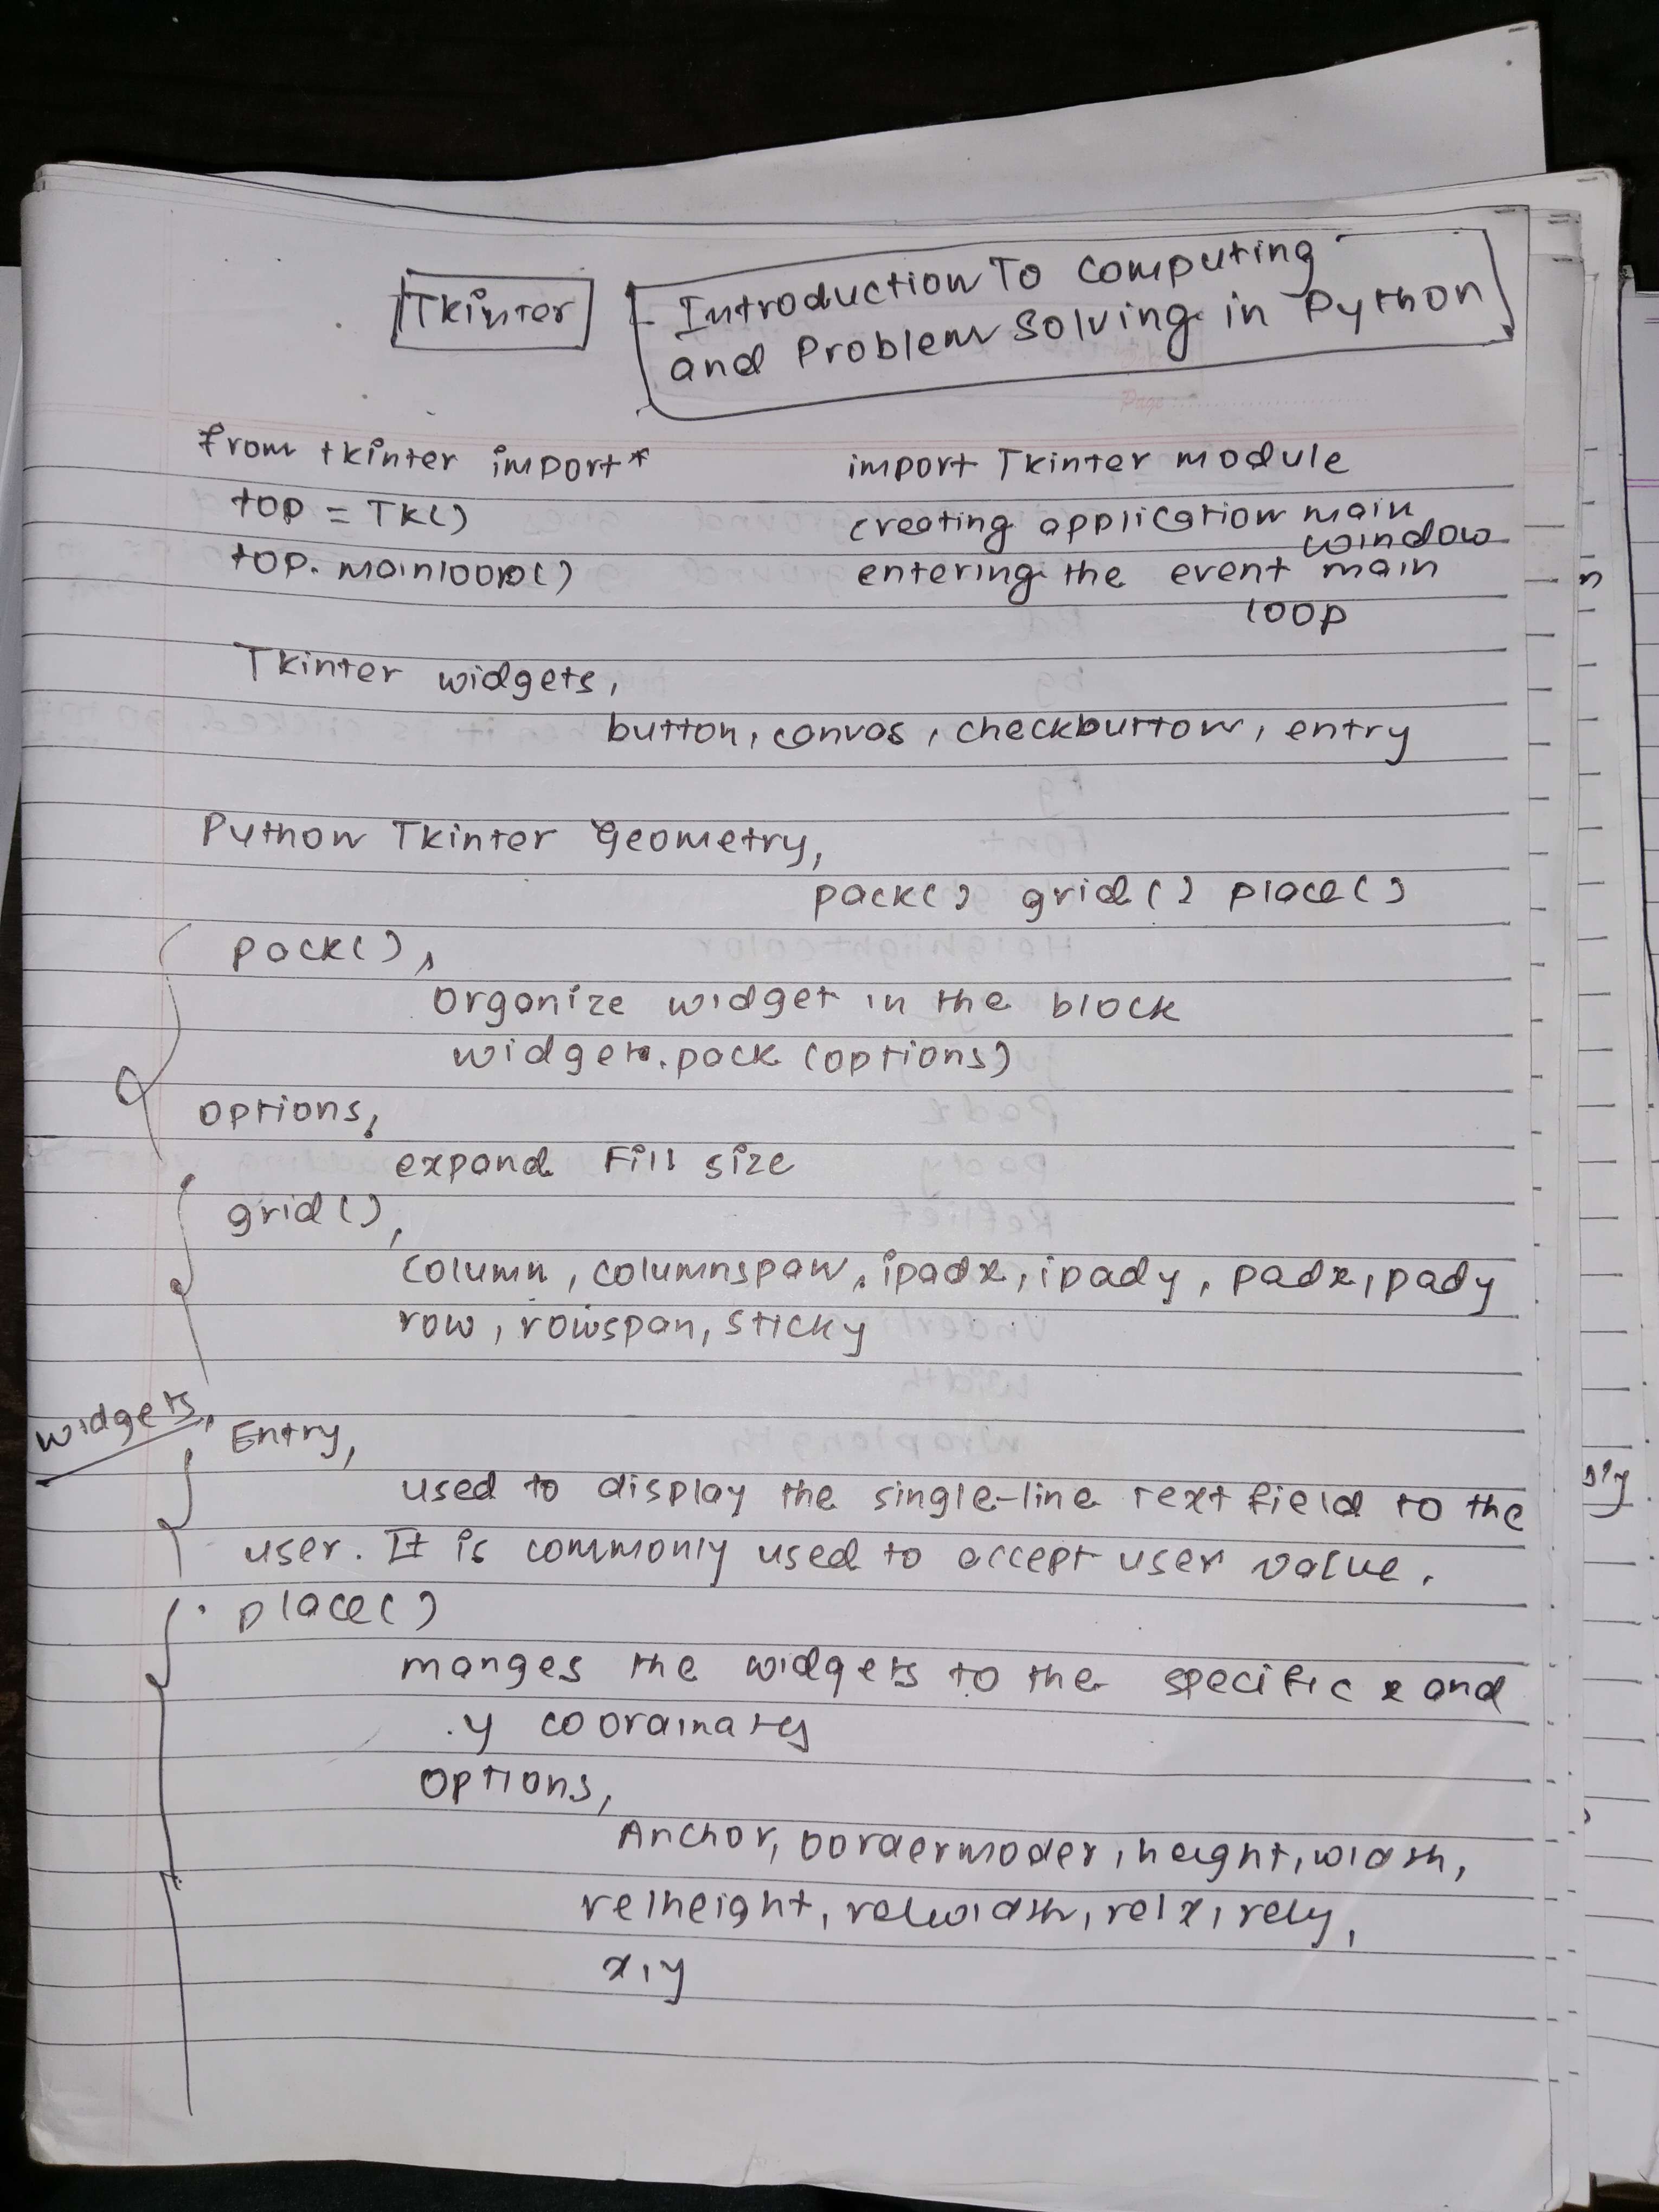 Tkinter
Introduction To Computing
and Problem Solving in Python
from tkinter import*
import Tkinter module
top = TK()
creating application main
window
top. mainloop()
entering the event main
loop
Tkinter widgets,
button, canvas, checkbutton, entry
Python Tkinter Geometry,
pack() grid() place()
pack(),
organize widget in the block
widgets.pack (options)
options,
expand Fill size
grid(),
column, columnspan, ipadx, ipady, padx, pady
row, rowspan, sticky
widgets,
Entry,
used to display the single-line text field to the
user. It is commonly used to accept user value.
place()
manges the widgets to the specific x and
y coordinates
options,
Anchor, bordermoder, height, width,
relheight, relwidth, relx, rely,
x, y